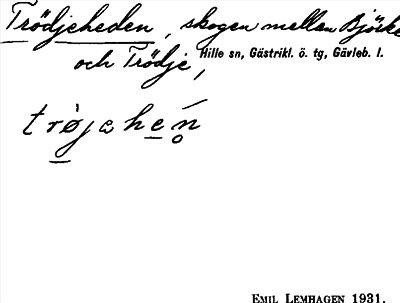 Trödjeheden, skogen mellan Björke
och Trödje,
Hille sn, Gästrikl. ö. tg, Gävleb. l.
trøjehén
EMIL LEMHAGEN 1931.